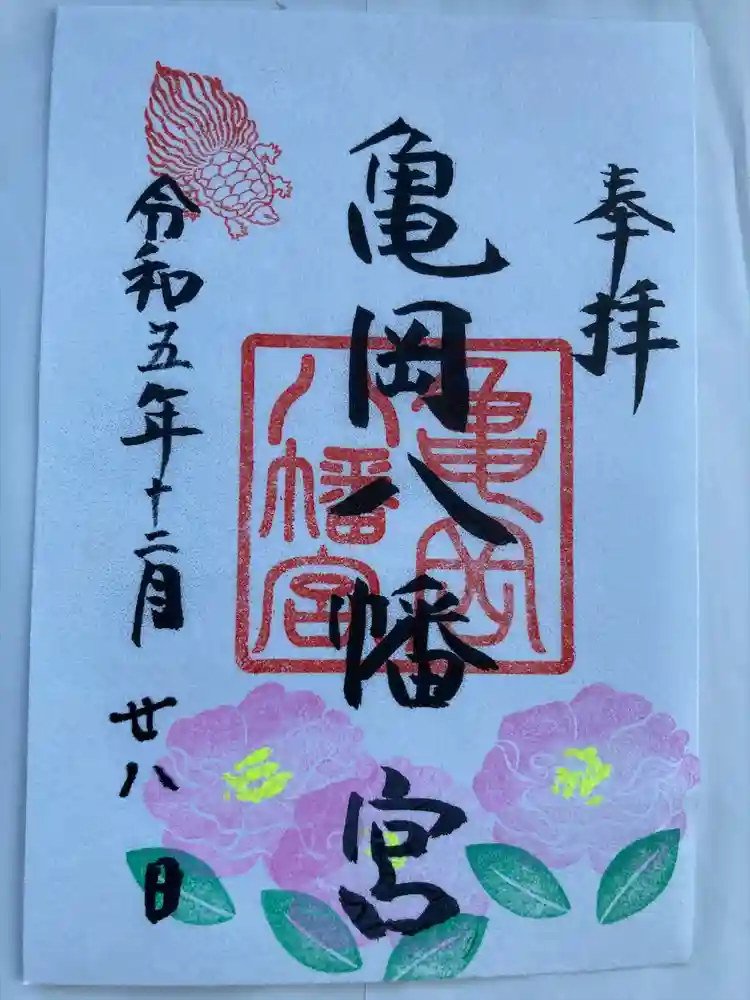 奉拝
亀岡八幡宮
亀岡
八幡宮
令和五年十二月廿八日